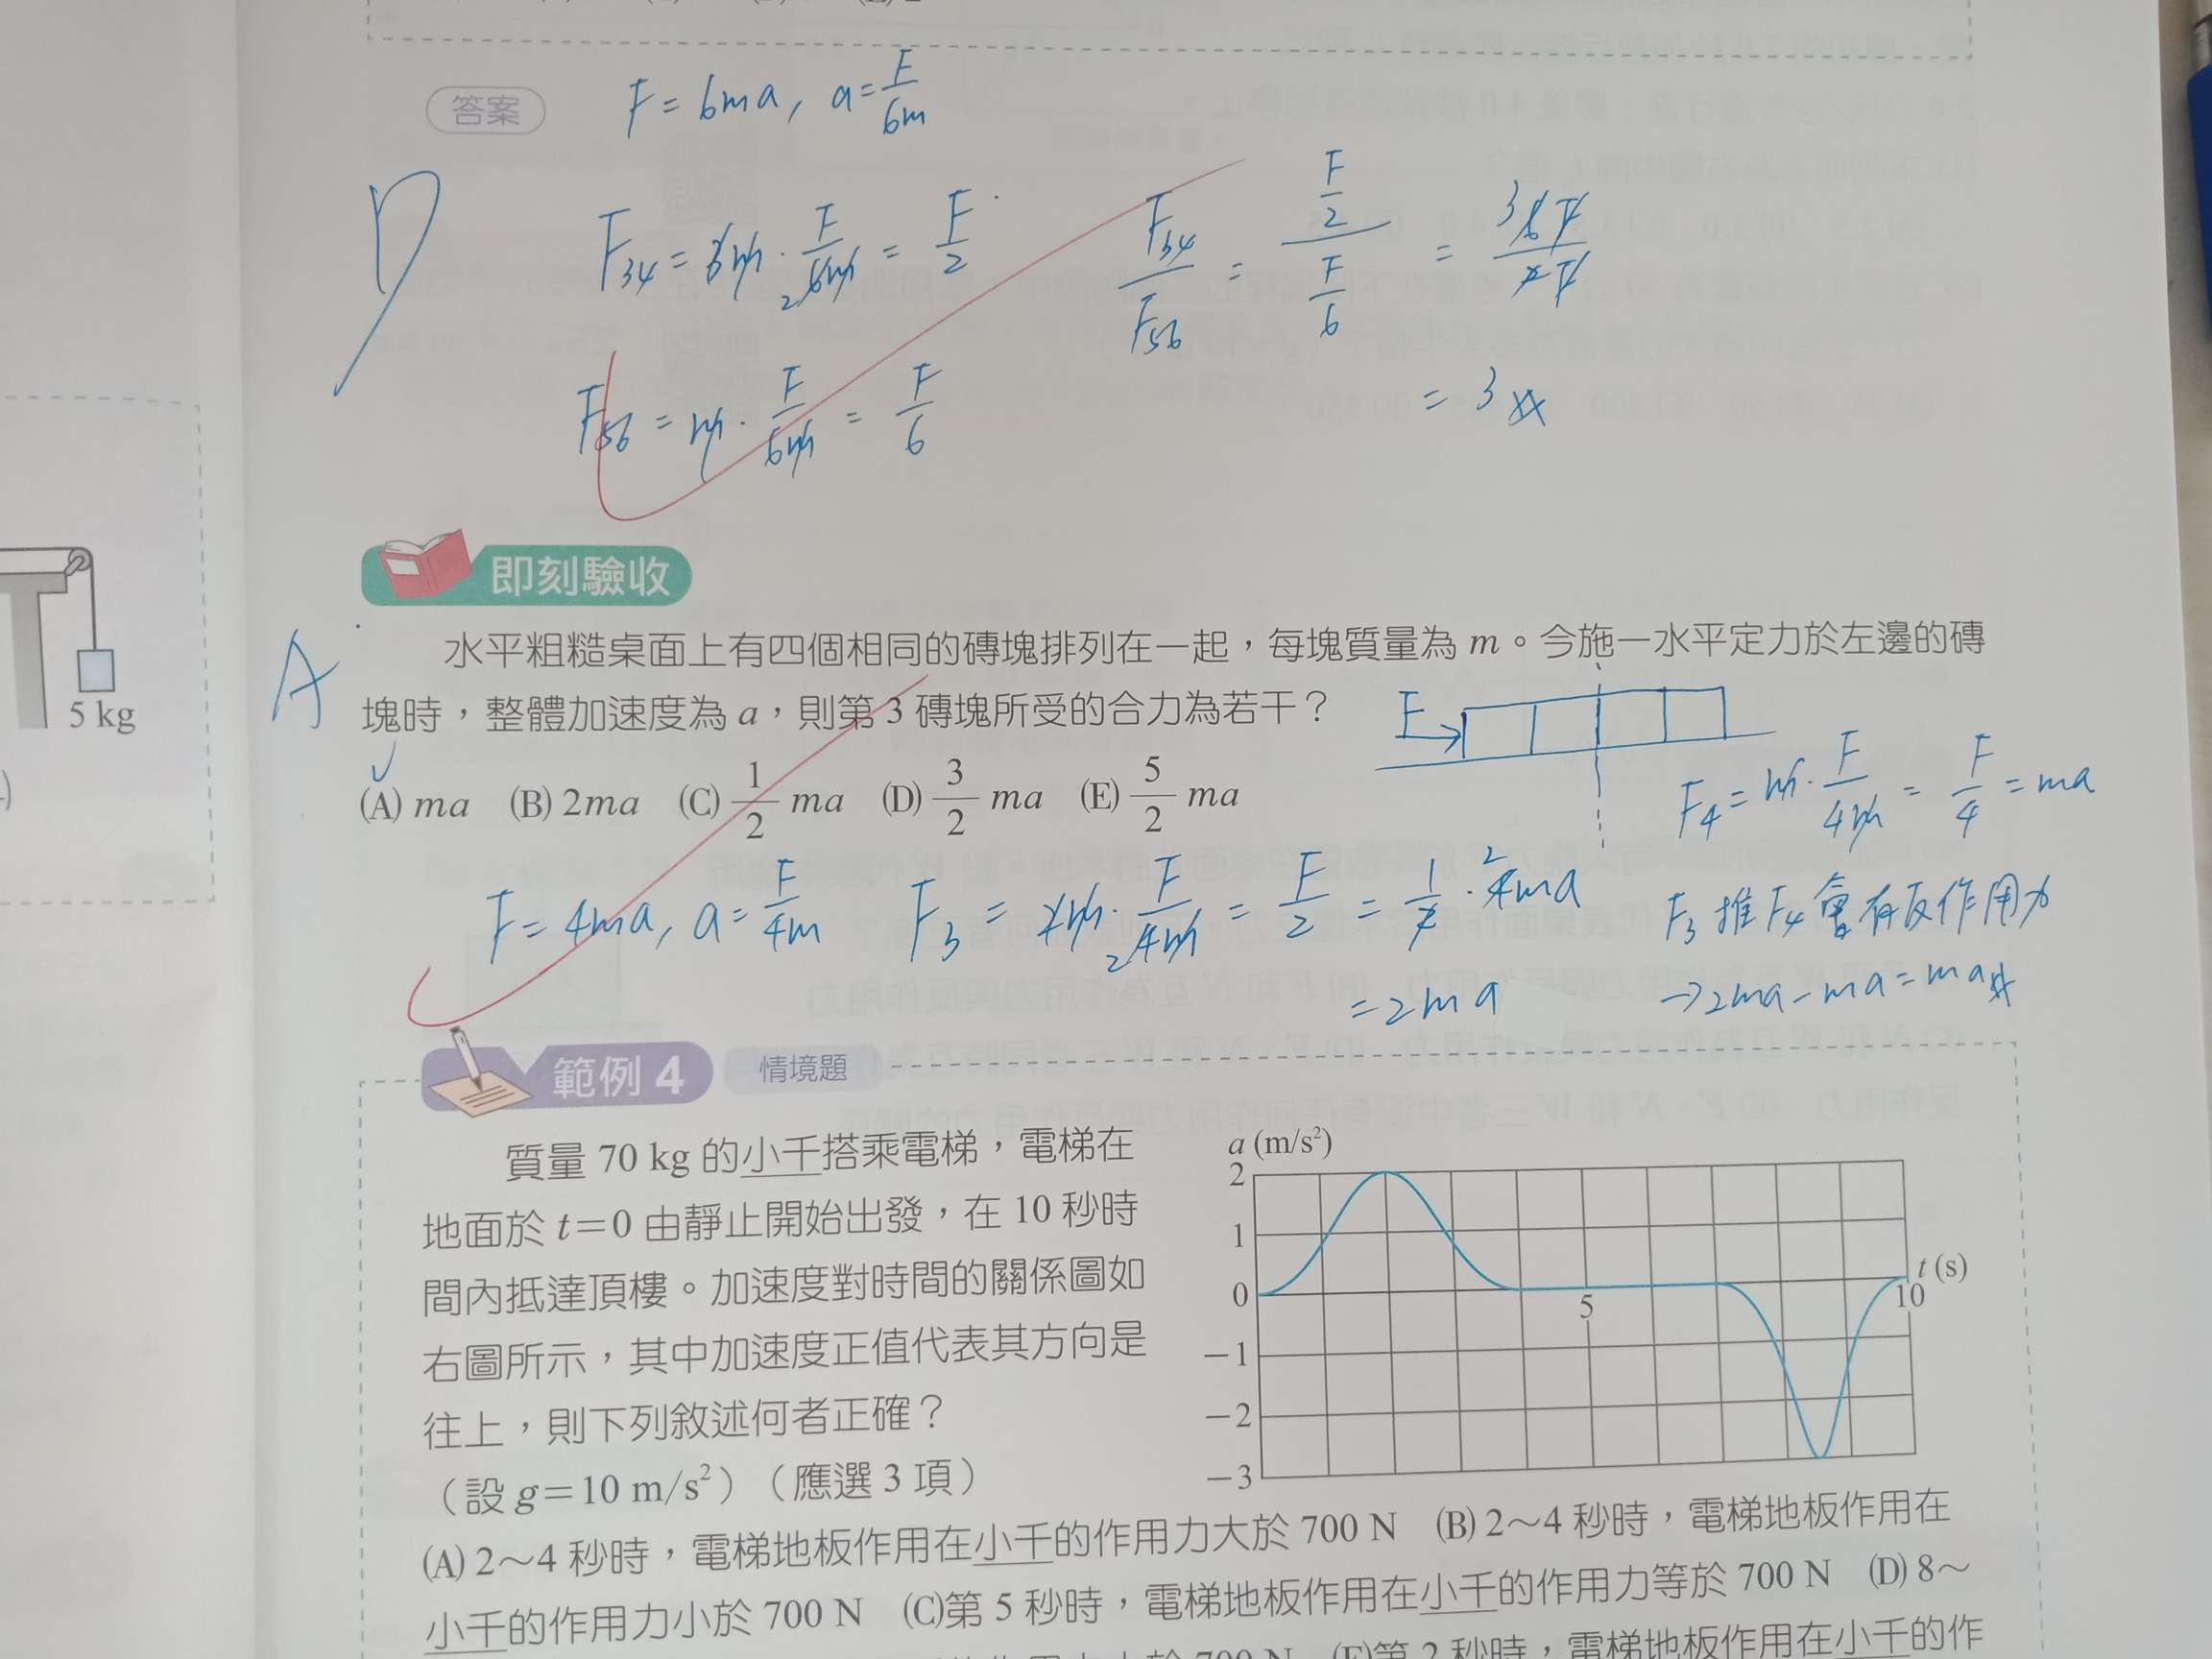 答案
F = 6ma, a = F/6m
D
F34 = 3m · F/6m = F/2
F34/F56 = (F/2)/(F/6) = 6F/2F
= 3
F56 = m · F/6m = F/6
即刻驗收
5 kg
A
水平粗糙桌面上有四個相同的磚塊排列在一起，每塊質量為 m。今施一水平定力於左邊的磚
塊時，整體加速度為 a，則第 3 磚塊所受的合力為若干？
(A) ma (B) 2ma (C) 1/2 ma (D) 3/2 ma (E) 5/2 ma
F
F4 = m · F/4m = F/4 = ma
F = 4ma, a = F/4m
F3 = 2m · F/4m = F/2 = 1/2 · 4ma
= 2ma
F3 推 F4 會有反作用力
→ 2ma - ma = ma
範例 4 情境題
質量 70 kg 的小千搭乘電梯，電梯在
地面於 t=0 由靜止開始出發，在 10 秒時
間內抵達頂樓。加速度對時間的關係圖如
右圖所示，其中加速度正值代表其方向是
往上，則下列敘述何者正確？
（設 g=10 m/s²）（應選 3 項）
a (m/s²)
2
1
0
−1
−2
−3
5
10
t (s)
(A) 2～4 秒時，電梯地板作用在小千的作用力大於 700 N (B) 2～4 秒時，電梯地板作用在
小千的作用力小於 700 N (C)第 5 秒時，電梯地板作用在小千的作用力等於 700 N (D) 8～
700 N (E)第 2 秒時，電梯地板作用在小千的作